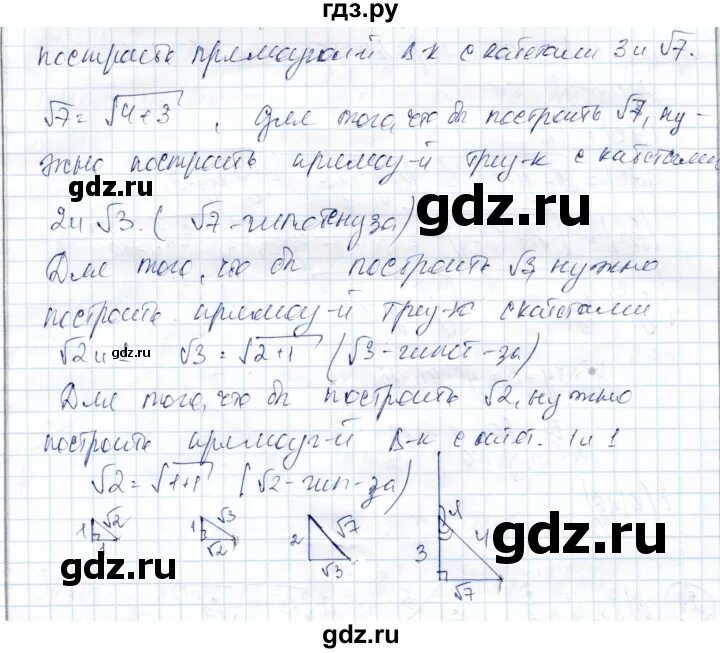 гдз.ру
построить прямоугольный Δ-к с катетами 3 и √7.
√7 = √4+3 , Для того, что бы построить √7, ну-
жно построить прямоу-й треу-к с катетами
gdz.ru
gdz.ru
2 и √3. ( √7 - гипотенуза)
Для того, что бы построить √3, нужно
построить прямоу-й треу-к с катетами
√2 и gdz.ru √3 = √2+1 (√3 - гипот-за)
Для того, что бы построить √2, нужно
построить прямоуг-й Δ-к с кат. 1 и 1
√2 = √1+1 (√2 - гип-за)
1 √2 1
1 √3 √2
2 √7 √3
3 4 √7
gdz.ru
gdz.ru
gdz.ru